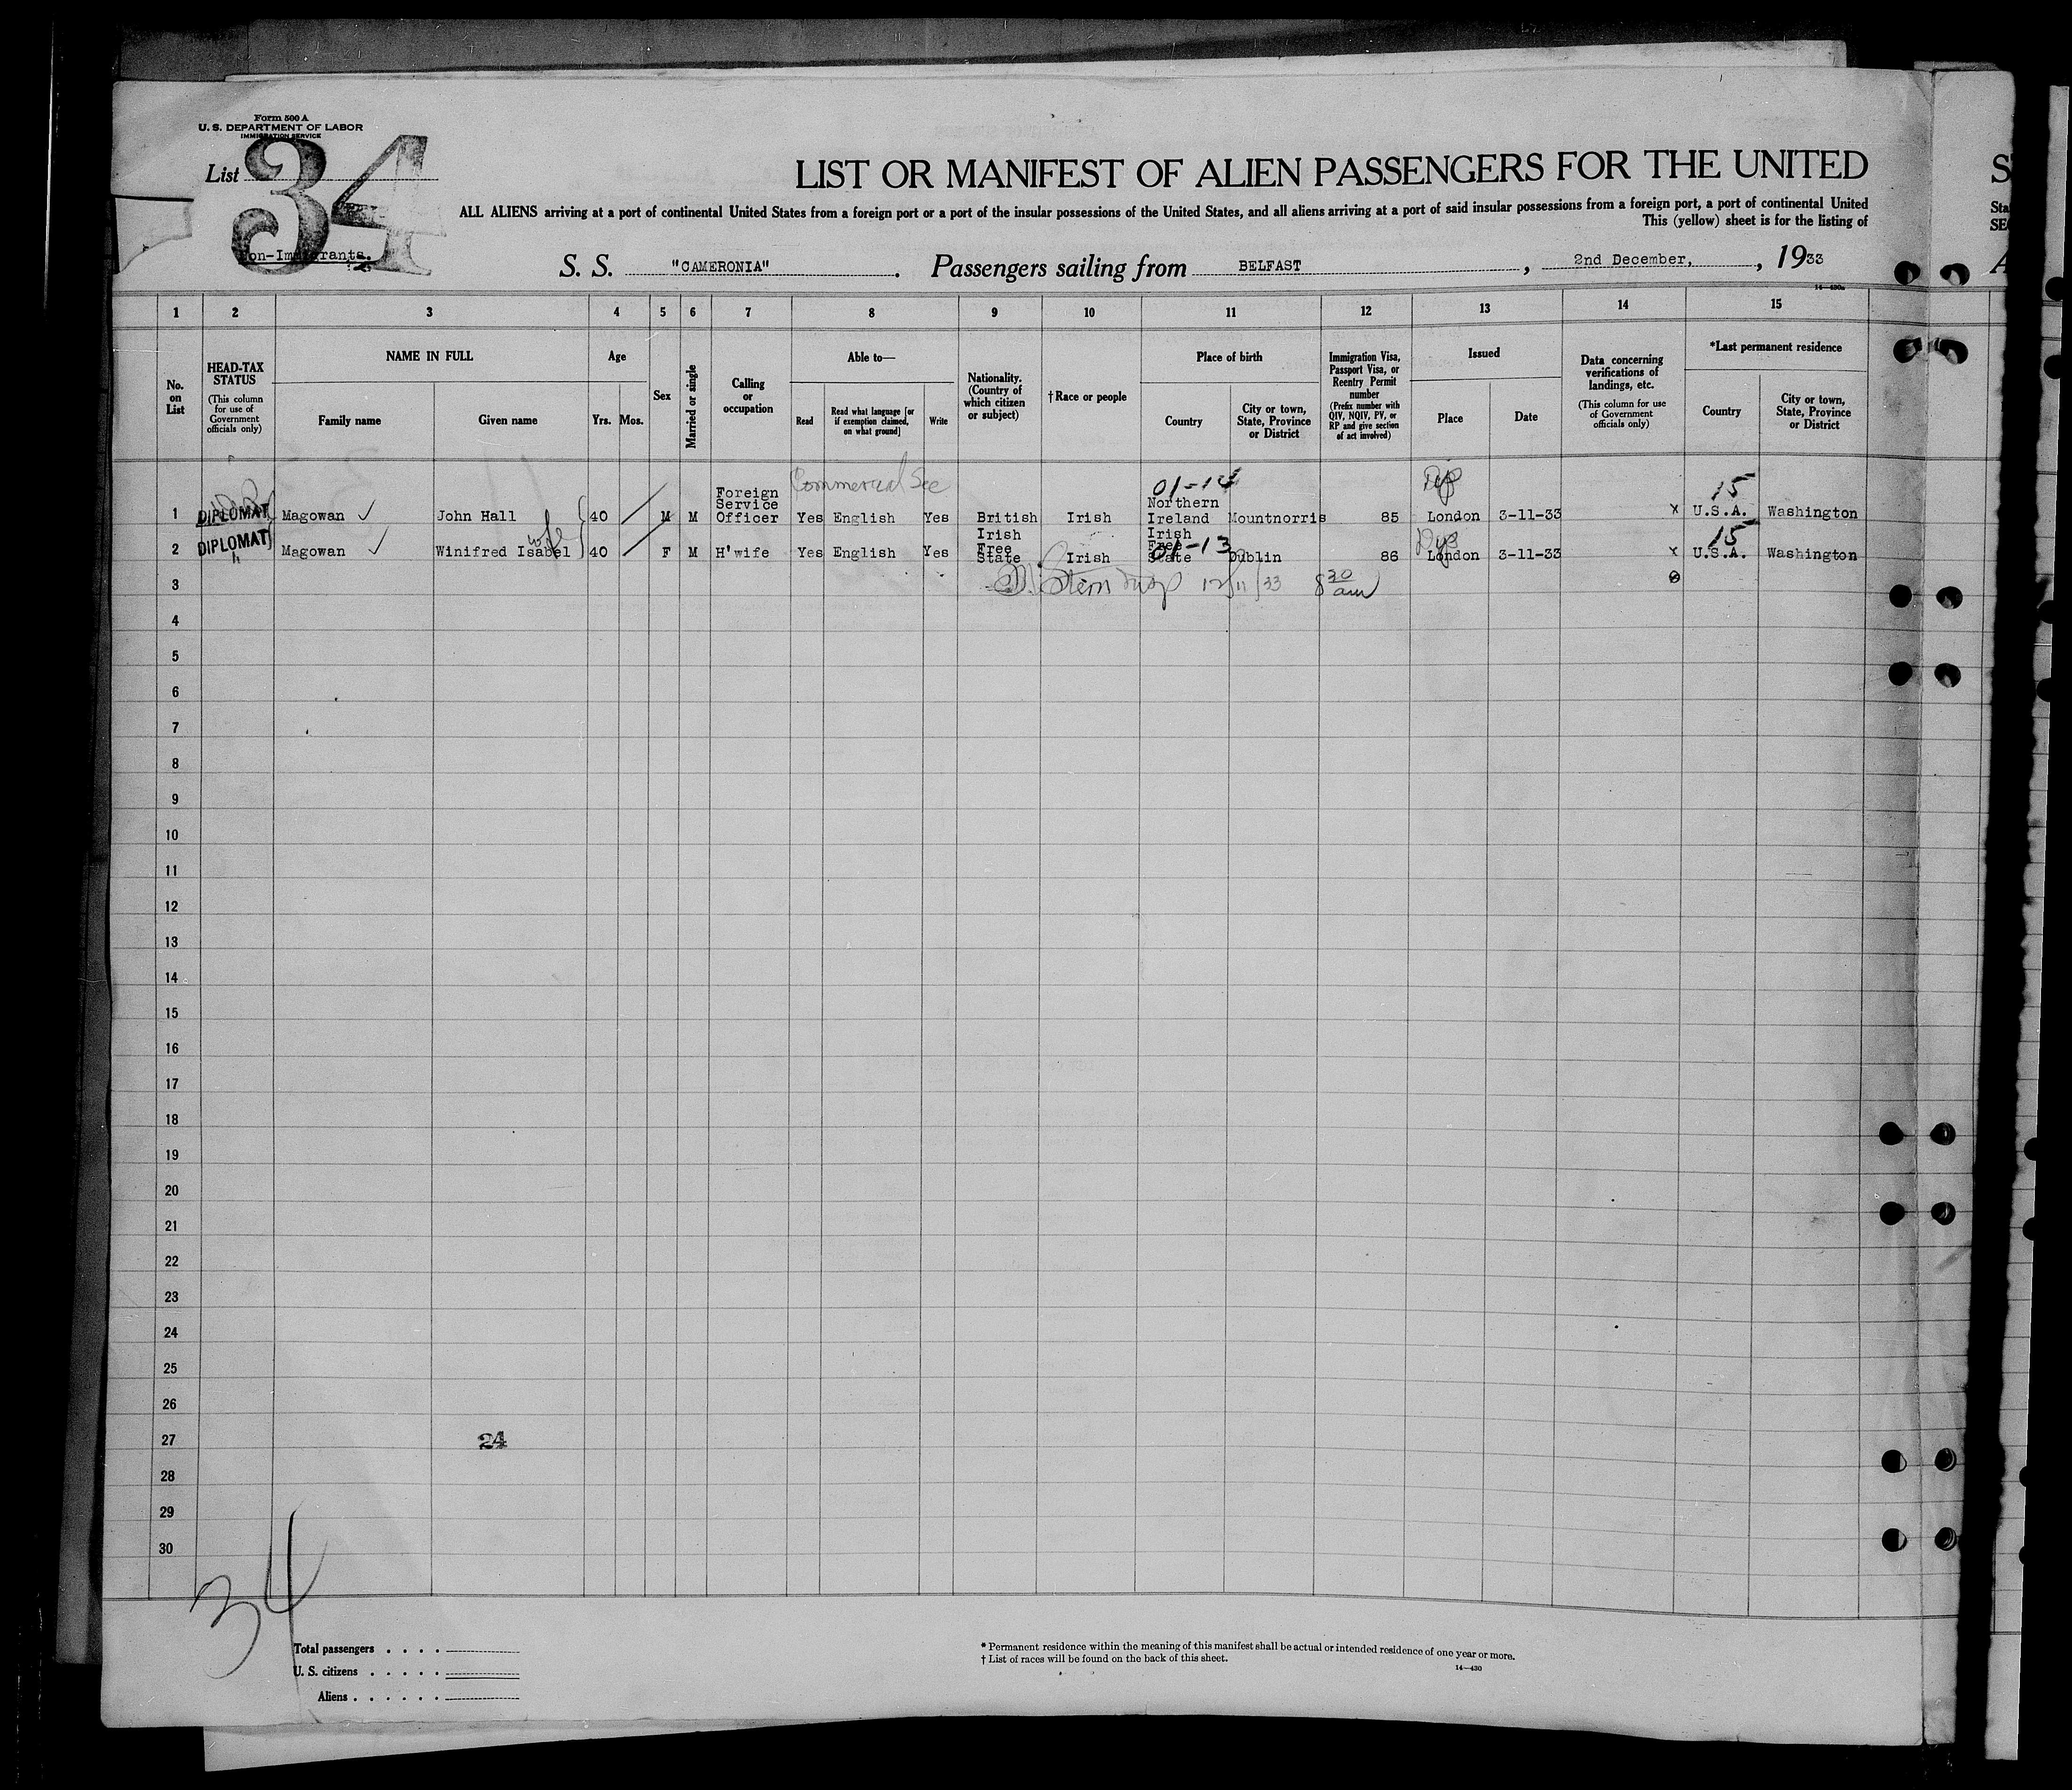 Form 500 A
U. S. DEPARTMENT OF LABOR
IMMIGRATION SERVICE
List 34
Non-Immigrants.
LIST OR MANIFEST OF ALIEN PASSENGERS FOR THE UNITED
ALL ALIENS arriving at a port of continental United States from a foreign port or a port of the insular possessions of the United States, and all aliens arriving at a port of said insular possessions from a foreign port, a port of continental United
This (yellow) sheet is for the listing of
S. S. "CAMERONIA". Passengers sailing from BELFAST, 2nd December, 1933
14—430a
1 2 3 4 5 6 7 8 9 10 11 12 13 14 15
No. on List
HEAD-TAX STATUS
(This column for use of Government officials only)
NAME IN FULL
Family name Given name
Age
Yrs. Mos.
Sex
Married or single
Calling or occupation
Able to—
Read
Read what language [or if exemption claimed, on what ground]
Write
Nationality. (Country of which citizen or subject)
†Race or people
Place of birth
Country
City or town, State, Province or District
Immigration Visa, Passport Visa, or Reentry Permit number
(Prefix number with QIV, NQIV, PV, or RP and give section of act involved)
Issued
Place Date
Data concerning verifications of landings, etc.
(This column for use of Government officials only)
*Last permanent residence
Country
City or town, State, Province or District
Commercial Sec 01-14 Dip 15
1 DIPLOMAT Magowan ✓ John Hall 40 M M Foreign Service Officer Yes English Yes British Irish Northern Ireland Mountnorris 85 London 3-11-33 x U.S.A. Washington
wife 01-13 Dip 15
2 DIPLOMAT Magowan ✓ Winifred Isabel 40 F M H'wife Yes English Yes Irish Free State Irish Irish Free State Dublin 86 London 3-11-33 x U.S.A. Washington
3 Stern Insp 12/11/33 8 30 am
4
5
6
7
8
9
10
11
12
13
14
15
16
17
18
19
20
21
22
23
24
25
26
27 24
28
29
30
34
Total passengers . . . .
U. S. citizens . . . . .
Aliens . . . . . .
* Permanent residence within the meaning of this manifest shall be actual or intended residence of one year or more.
† List of races will be found on the back of this sheet.
14—430